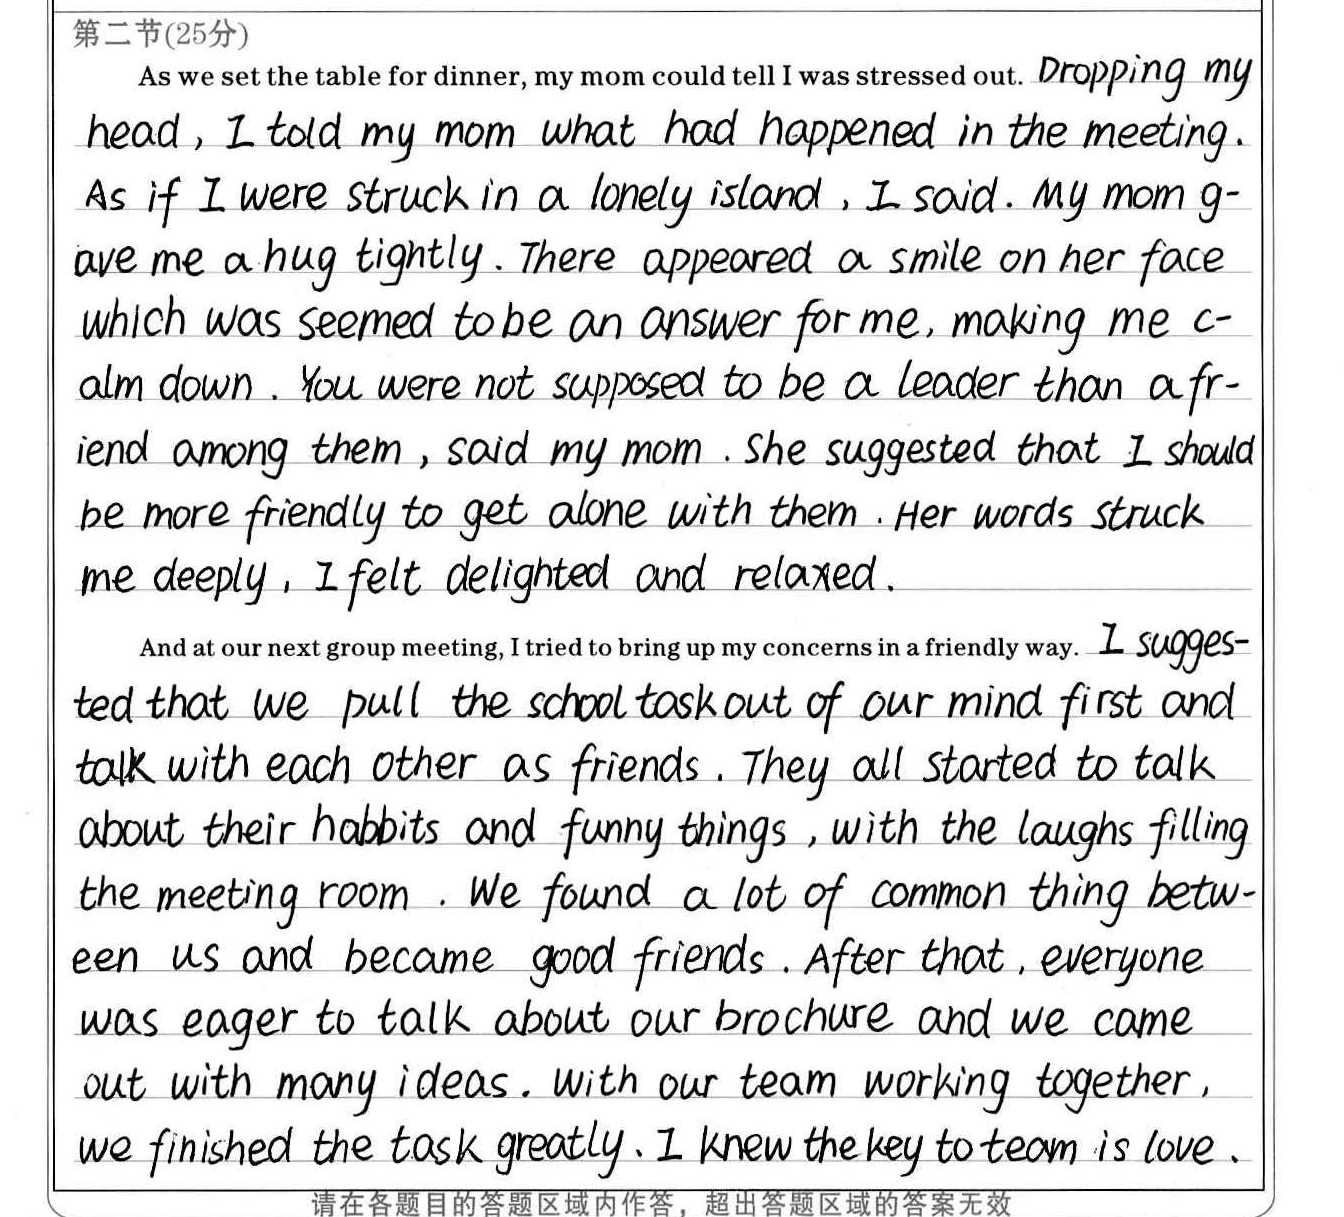 第二节(25分)
As we set the table for dinner, my mom could tell I was stressed out. Dropping my
head, I told my mom what had happened in the meeting.
As if I were struck in a lonely island, I said. My mom g-
ave me a hug tightly. There appeared a smile on her face
which was seemed to be an answer for me, making me c-
alm down. You were not supposed to be a leader than a fr-
iend among them, said my mom. She suggested that I should
be more friendly to get alone with them. Her words struck
me deeply, I felt delighted and relaxed.
And at our next group meeting, I tried to bring up my concerns in a friendly way. I sugges-
ted that we pull the school task out of our mind first and
talk with each other as friends. They all started to talk
about their habbits and funny things, with the laughs filling
the meeting room. We found a lot of common thing betw-
een us and became good friends. After that, everyone
was eager to talk about our brochure and we came
out with many ideas. With our team working together,
we finished the task greatly. I knew the key to team is love.
请在各题目的答题区域内作答，超出答题区域的答案无效